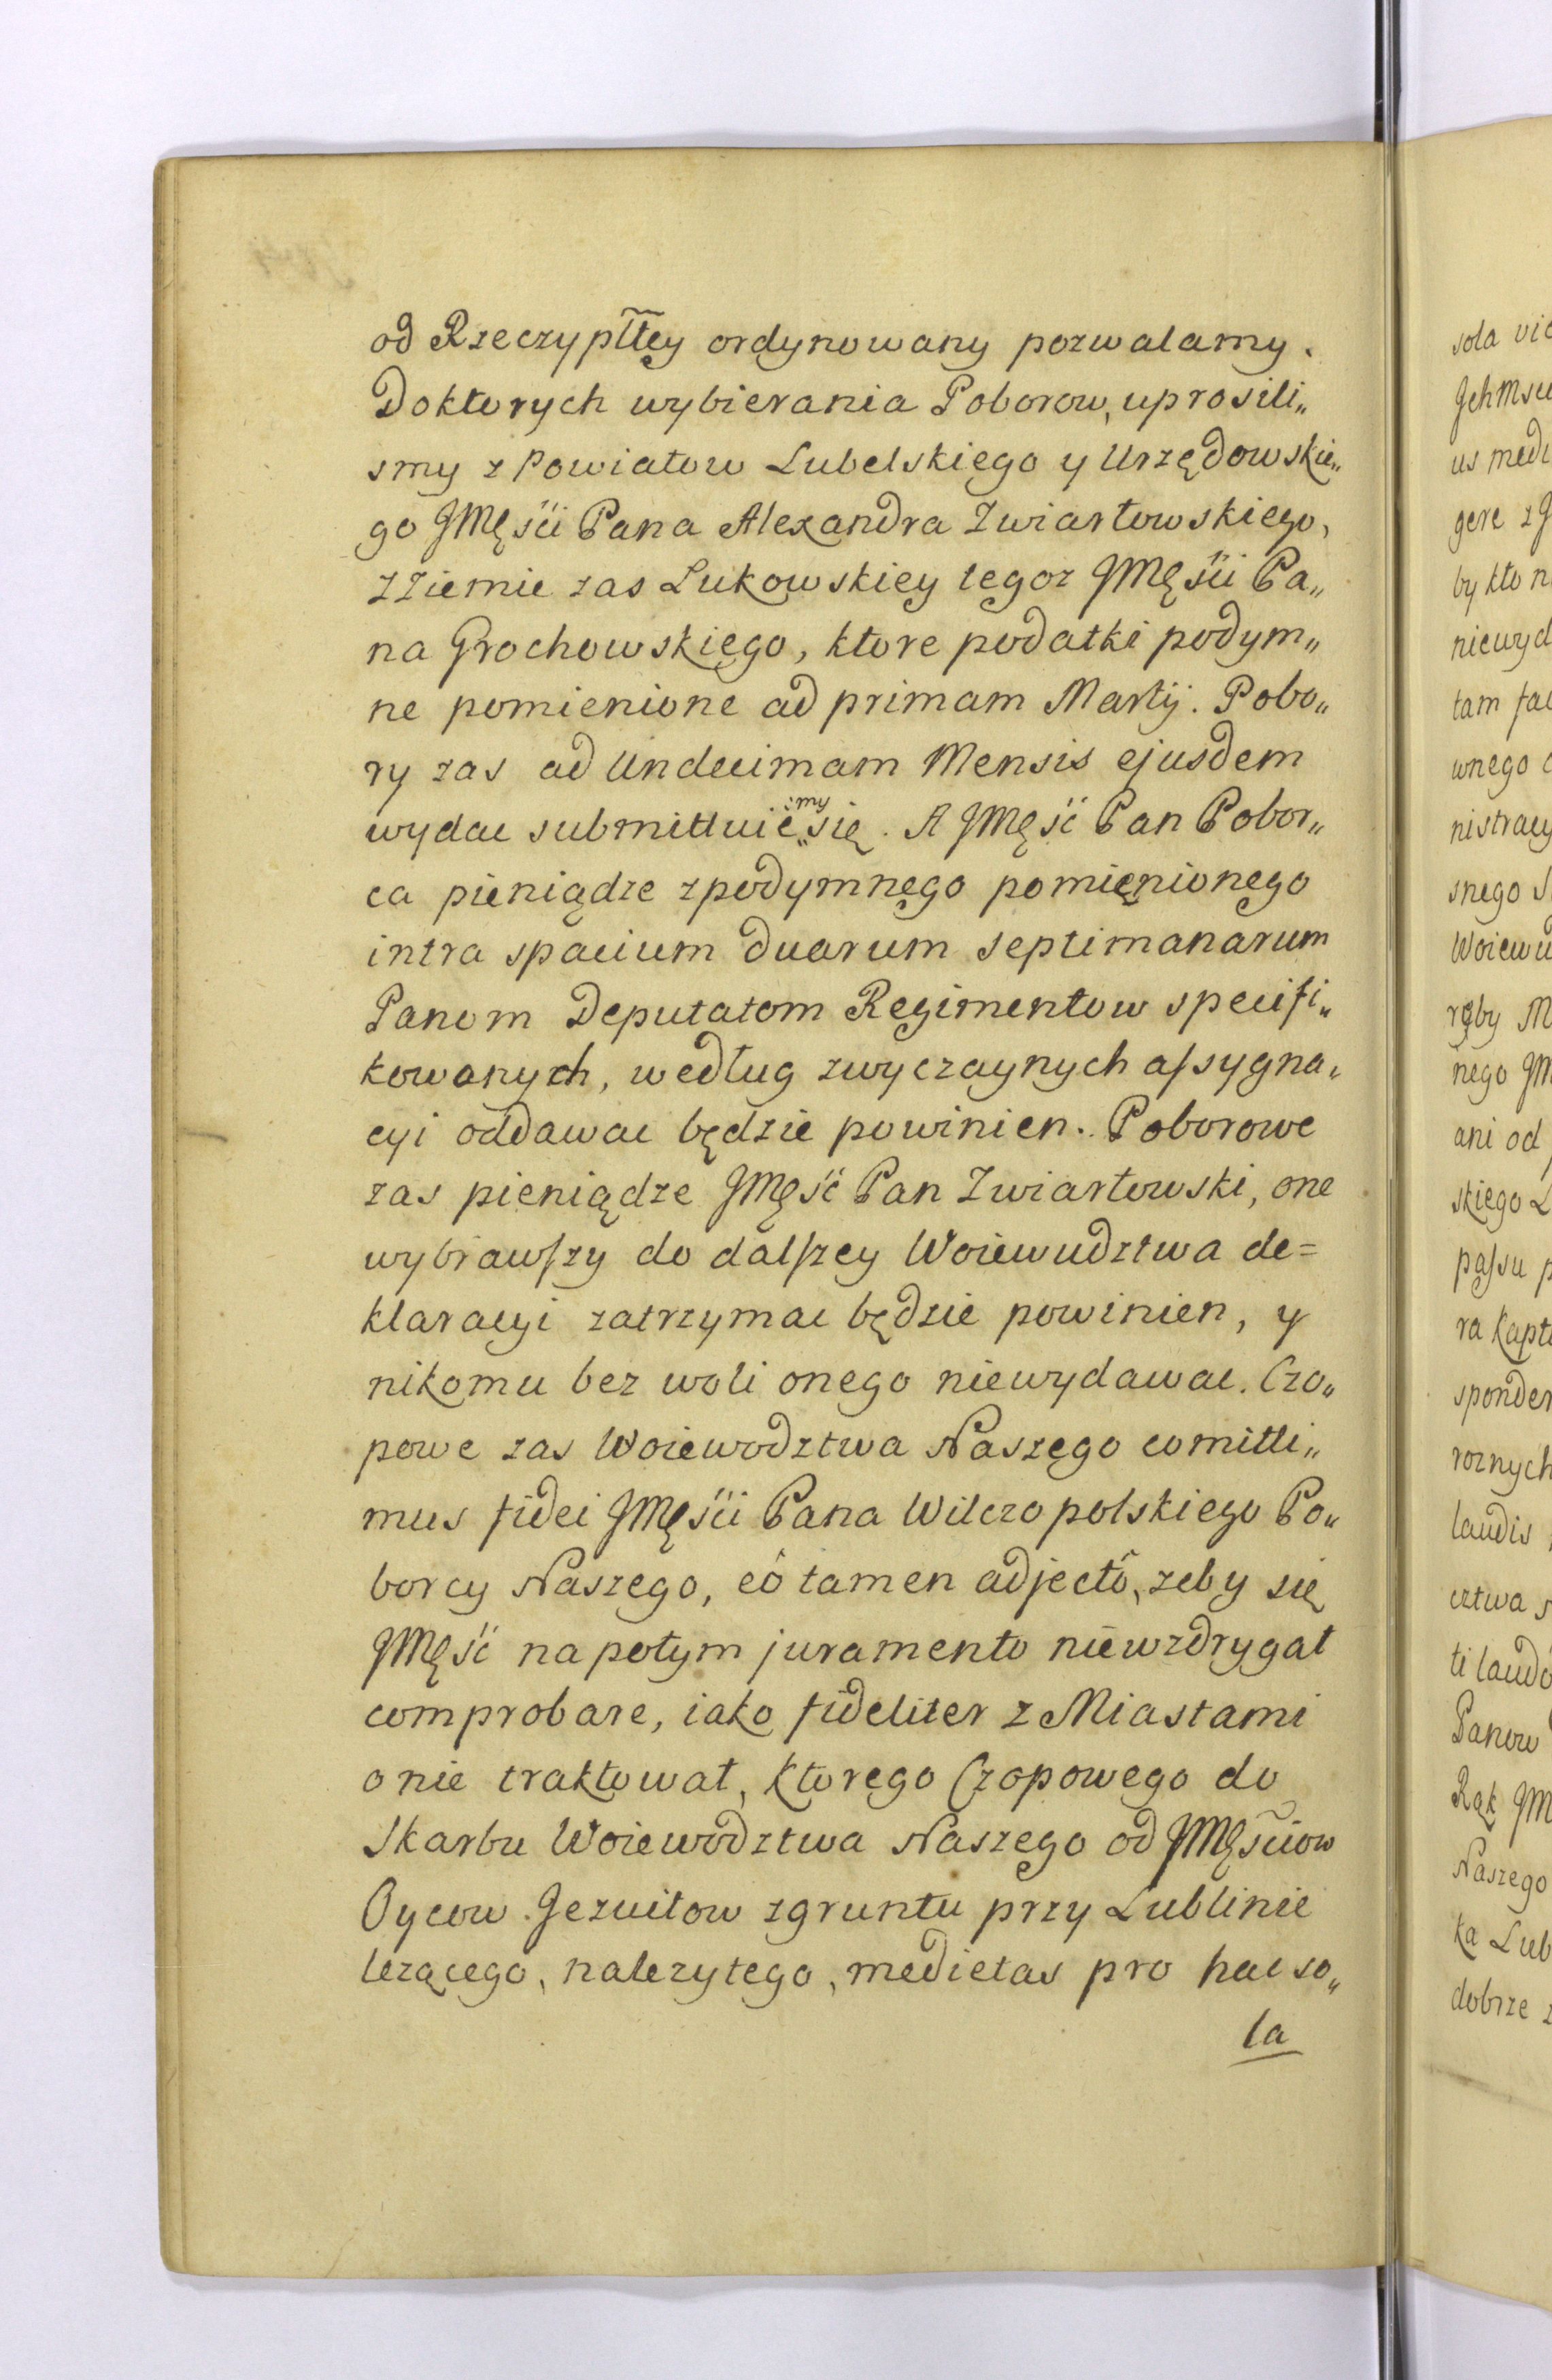 od Rzeczypłłey ordynowany pozwalamy.
Doktorych wybierania Poborow, uprosili„
smy z Powiatow Lubelskiego y Urzędowskie„
go JMęści Pana Alexandra Zwiartowskiego,
z Ziemie zas Lukowskiey tegoz JMęści Pa„
na Grochowskiego, ktore podatki podym„
ne pomienione ad primam Martij. Pobo„
ry zas ad Undecimam Mensis ejusdem
wydac submittuiemy się. A JMęść Pan Pobor„
ca pieniądze zpodymnego pomięnionego
intra spacium duarum septimanarum
Panom Deputatom Regimentow specifi„
kowanych, według zwyczaynych assygna„
cyi oddawac będzie powinien. Poborowe
zas pieniądze JMęść Pan Zwiartowski, one
wybrawszy do dalszey Woiewudztwa de=
klaracyi zatrzymac będzie powinien, y
nikomu bez woli onego niewydawac. Czo„
powe zas Woiewodztwa Naszego comitti„
mus fidei JMęści Pana Wilczopolskiego Po„
borcy Naszego, eô tamen adjectô, zeby się
JMęść napotym juramento niewzdrygał
comprobare, iako fideliter z Miastami
onie traktował, ktorego Czopowego do
Skarbu Woiewodztwa Naszego od JMęściow
Oycow Jezuitow zgruntu przy Lublinie
lezącego, nalezytego, medietas pro hac so„
la
sola vic
JchMsc
us medi
gere z J
by kto n
niewyd
tam fac
wnego
nistracy
snego
Woiewu
rgby M
nego JM
ani od
skiego L
passu p
ra Kapt
sponden
roznych
laudis
cztwa
ti laudo
Panow
Rąk JM
Naszego
ka Lub
dobrze z